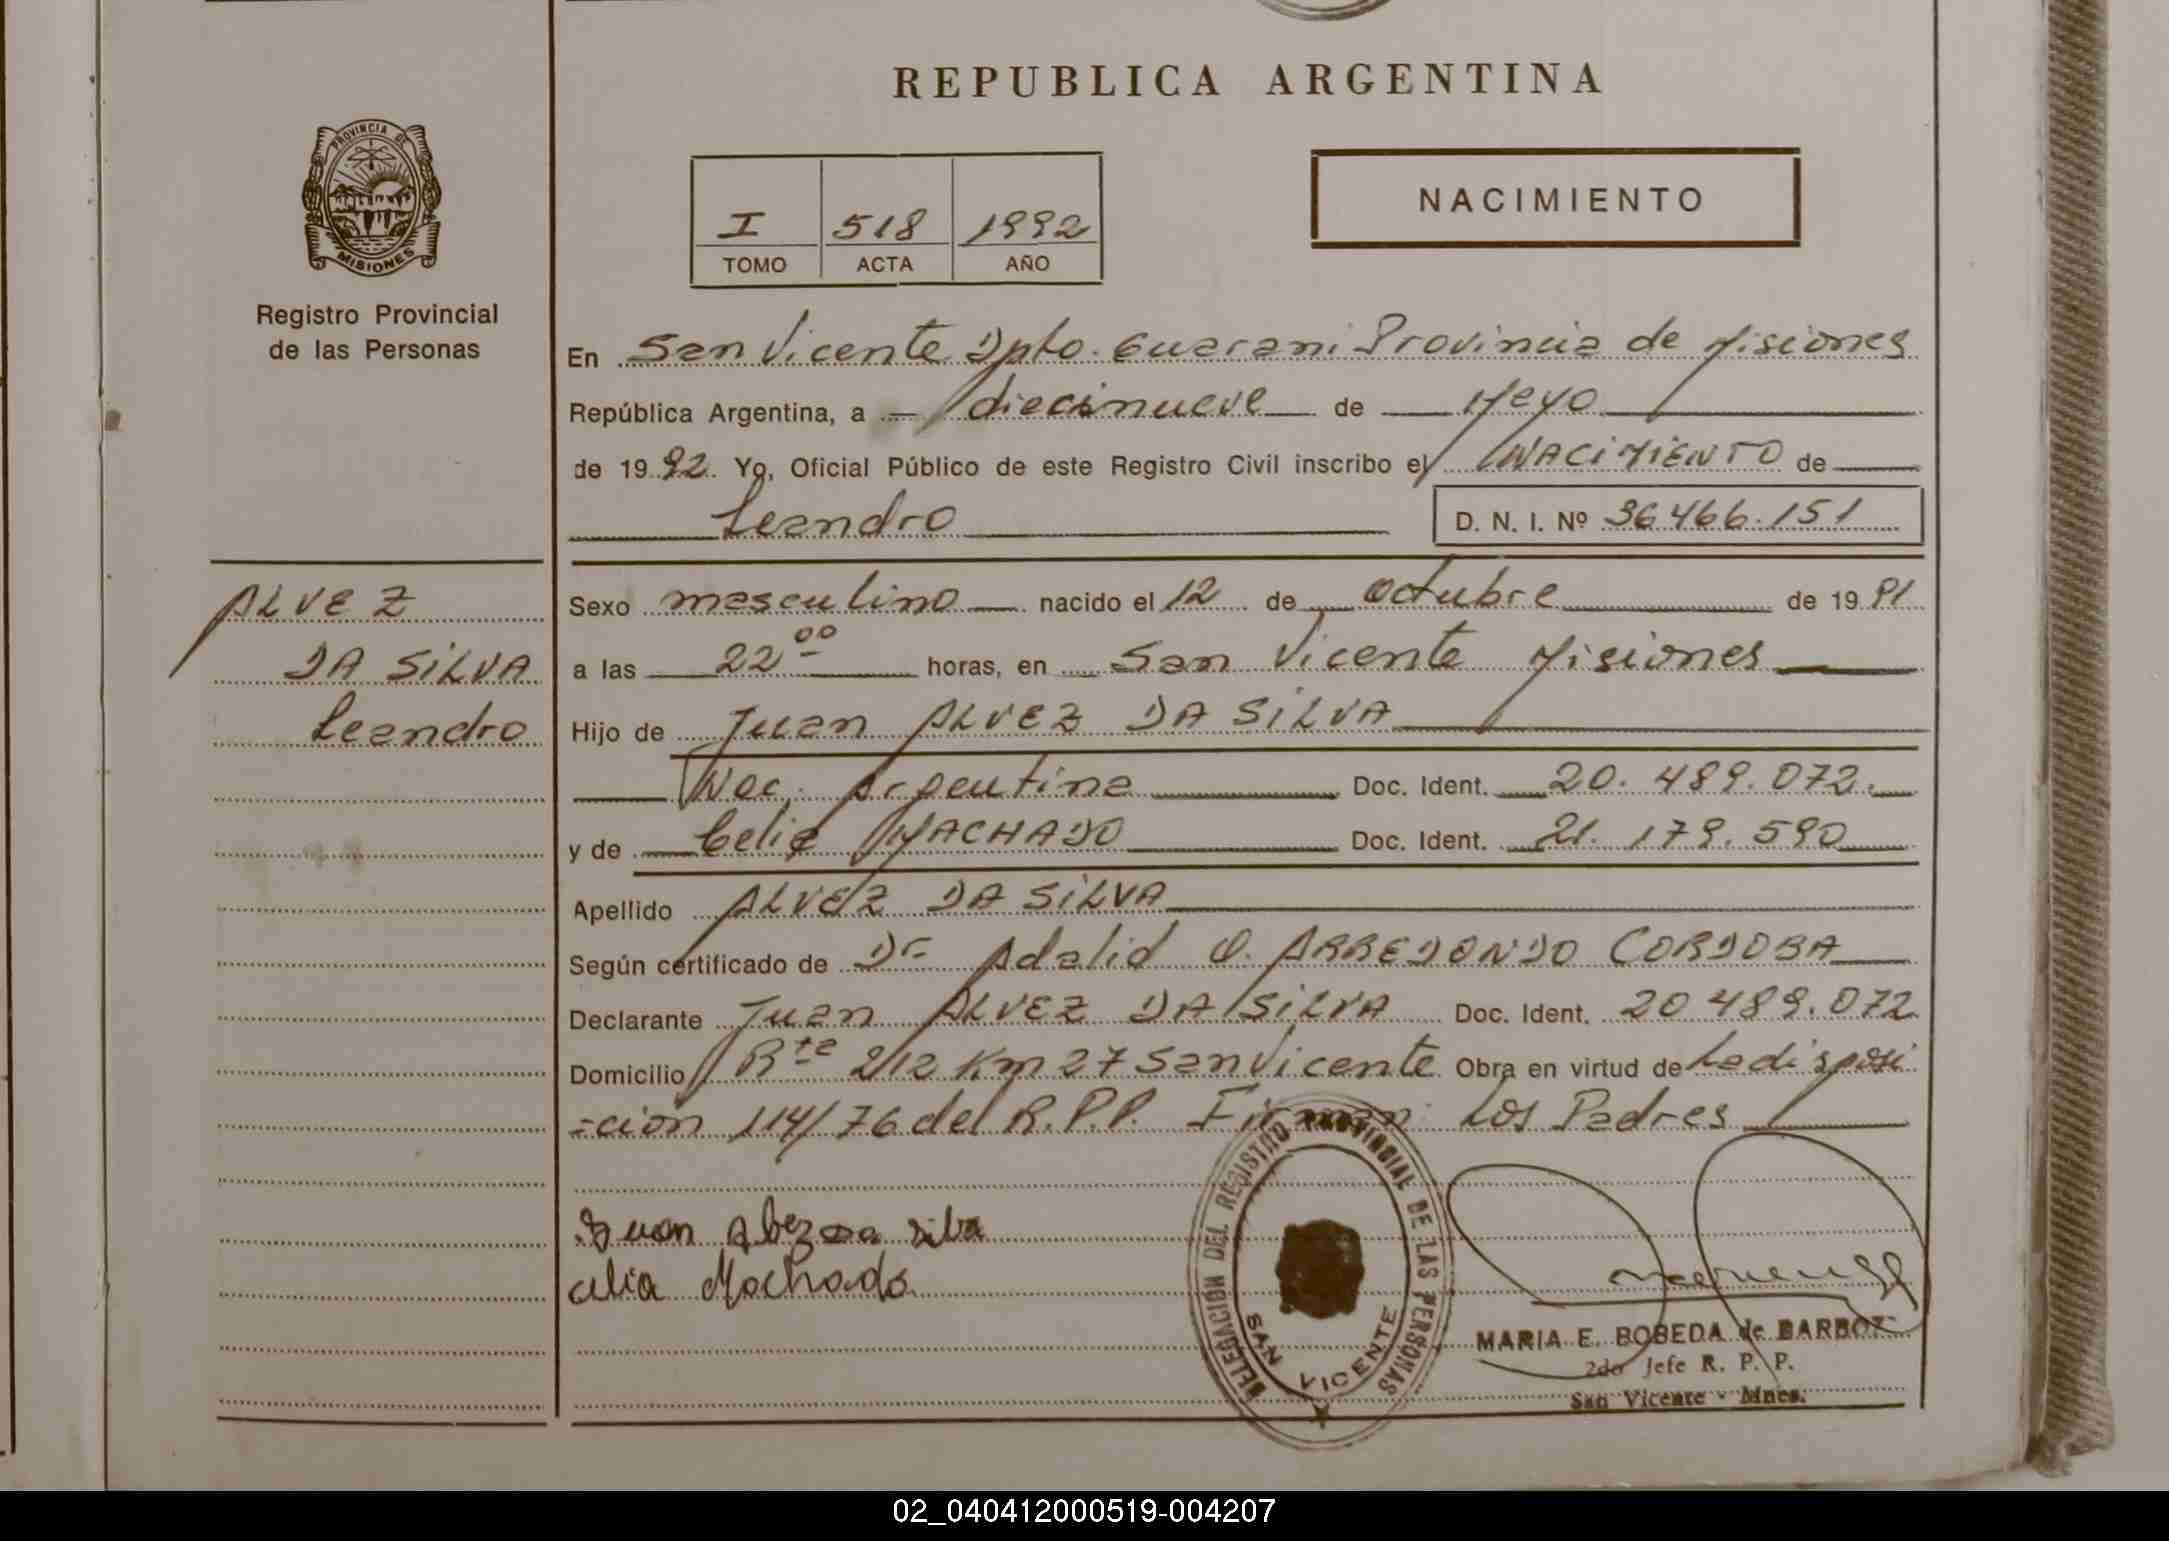 REPUBLICA ARGENTINA
PROVINCIA DE
MISIONES
Registro Provincial
de las Personas
I 518 1992
TOMO ACTA AÑO
NACIMIENTO
En San Vicente Dpto. Guarani Provincia de Misiones
República Argentina, a — diecinueve de Mayo
de 1992. Yo, Oficial Público de este Registro Civil inscribo el NACIMIENTO de
Leandro
D. N. I. Nº 36466.151
ALVEZ
DA SILVA
Leandro
Sexo masculino nacido el 12 de octubre de 1991
a las 22 00 horas, en San Vicente Misiones
Hijo de Juan ALVEZ DA SILVA
Nac. Argentina Doc. Ident. 20.489.072.
y de Celia MACHADO Doc. Ident. 21.179.590
Apellido ALVEZ DA SILVA
Según certificado de Dr Adalid O. ARREDONDO CORDOBA
Declarante Juan ALVEZ DA SILVA Doc. Ident. 20 489.072
Domicilio Rta 212 Km 27 San Vicente Obra en virtud de La disposi
=ción 114/76 del R.P.P. Firman: Los Padres
Juan Albez da silba
celia Machado
DELEGACION DEL REGISTRO PROVINCIAL DE LAS PERSONAS
SAN VICENTE
MARIA E. BOBEDA de BARBOZ
2do Jefe R. P. P.
San Vicente - Mnes.
02_040412000519-004207